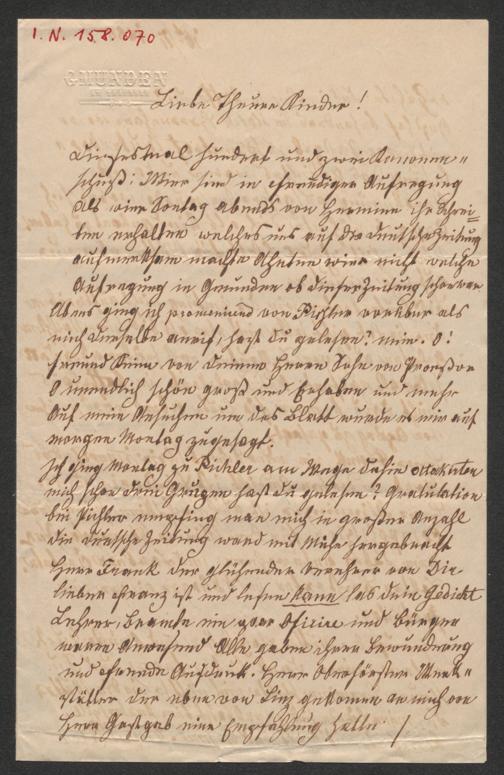 I. N. 158.070
GMUNDEN
Liebe Theure Kinder!
Diesesmal hundert und zwei Kanonen-
schuß: Mier sind in freudiger Aufregung
als wier Sontag abends von Hermine ihr Schrei=
ben erhalten welches uns auf die deutsche Zeitung
aufmerksam machte Ahnten wier nicht welche
Aufregung in Gmunden ob dieser Zeitung schon war
Abens ging ich promenirend von Pichler vorüber als
mich derselbe anrief, hast du gelesen? nein. O!
freund Keim von deinem Herrn Sohn von Proffessor
O unendlich schön groß und Erhaben und mehr
Auf mein Ansuchen um das Blatt wurde es mir auf
morgen Montag zugesagt.
Ich ging Montag zu Pichler am Wege dahin
mich schon dem hast du gelesen? Gratulation
bei Pichler empfing man mich in großer Anzahl
die deutsche Zeitung ward mit Mühe hergebracht
Herr Frank der glühender Verehrer von Dir
lieber Franz ist und lesen kann las dein Gedicht
Lehrer, Beamte ein paar Oficire und Bürger
waren Anwesend Alle gaben ihrer Bewunderung
und freude Ausdruck. Herr Oberförster
der eben von Linz gekomen an mich von
Herrn eine Empfehlung hatte /